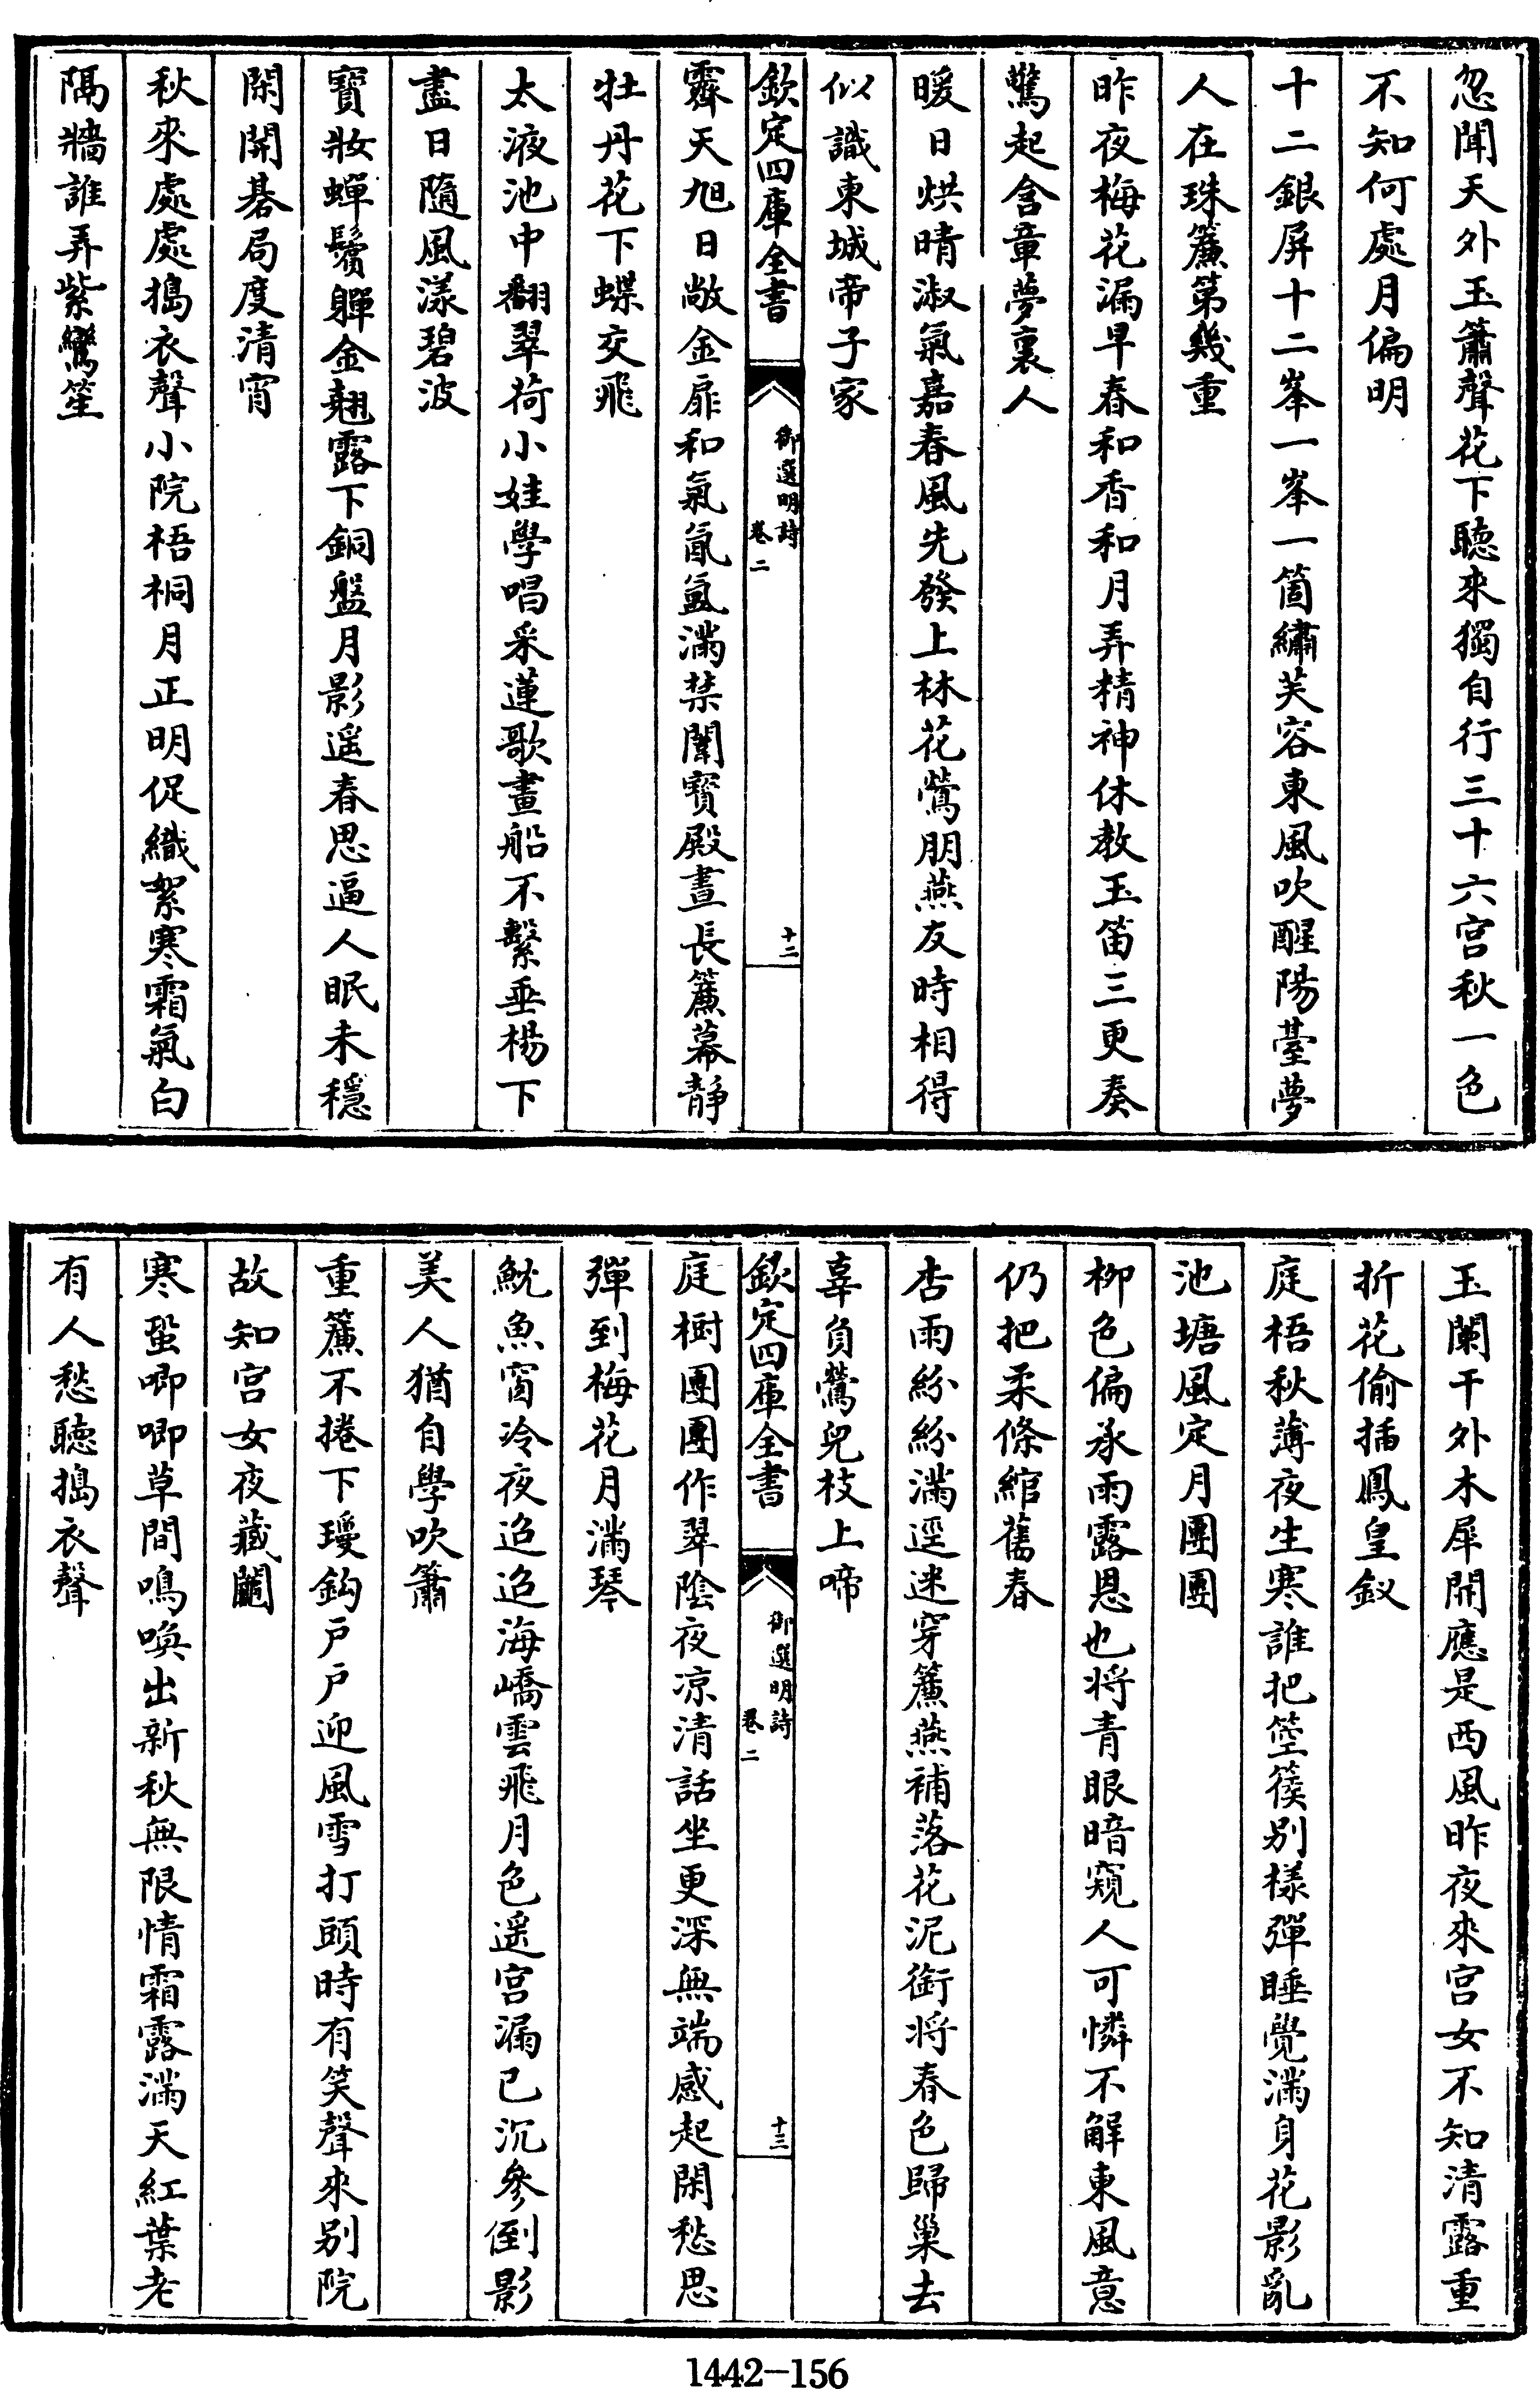 忽聞天外玉簫聲花下聽來獨自行三十六宮秋一色
不知何處月偏明
十二銀屏十二峯一峯一箇繡芙容東風吹醒陽臺夢
人在珠簾第幾重
昨夜梅花漏早春和香和月弄精神休教玉笛三更奏
驚起含章夢裏人
暖日烘晴淑氣嘉春風先發上林花鶯朋燕友時相得
似識東城帝子家
欽定四庫全書
御選明詩
卷二
十二
霽天旭日敞金扉和氣氤氳滿禁闈寶殿晝長簾幕靜
牡丹花下蝶交飛
太液池中翻翠荷小娃學唱采蓮歌畫船不繫垂楊下
盡日隨風漾碧波
寶妝蟬鬢嚲金翹露下銅盤月影遥春思逼人眠未穩
閑開碁局度清宵
秋來處處搗衣聲小院梧桐月正明促織絮寒霜氣白
隔牆誰弄紫鸞笙
玉闌干外木犀開應是西風昨夜來宮女不知清露重
折花偷插鳳皇釵
庭梧秋薄夜生寒誰把箜篌别樣彈睡覺滿身花影亂
池塘風定月團團
柳色偏承雨露恩也將青眼暗窺人可憐不解東風意
仍把柔條綰舊春
杏雨紛紛滿逕迷穿簾燕補落花泥銜將春色歸巢去
辜負鶯兒枝上啼
欽定四庫全書
御選明詩
卷二
十三
庭樹團團作翠陰夜凉清話坐更深無端感起閑愁思
彈到梅花月滿琴
魫魚窗冷夜迢迢海嶠雲飛月色遥宮漏已沉參倒影
美人猶自學吹簫
重簾不捲下璦鈎戶戶迎風雪打頭時有笑聲來别院
故知宮女夜藏鬮
寒蛩唧唧草間鳴喚出新秋無限情霜露滿天紅葉老
有人愁聽搗衣聲
1442-156